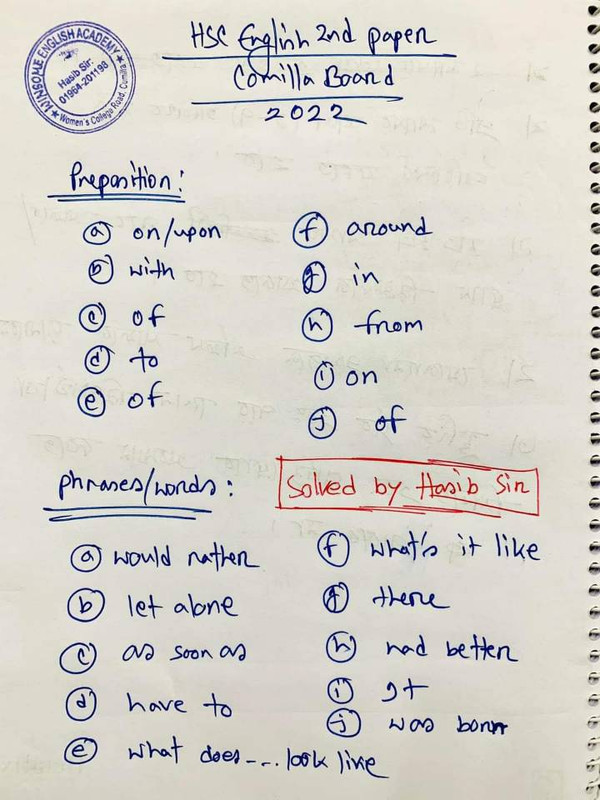 WINSOME ENGLISH ACADEMY
Hasib Sir
01964-201198
Women's College Road, Cumilla
HSC English 2nd paper
Comilla Board
2022
Preposition:
a on/upon
b with
c of
d to
e of
f around
g in
h from
i on
j of
Solved by Hasib Sir
phrases/words:
a would rather
b let alone
c as soon as
d have to
e what does---look like
f what's it like
g there
h had better
i It
j was born